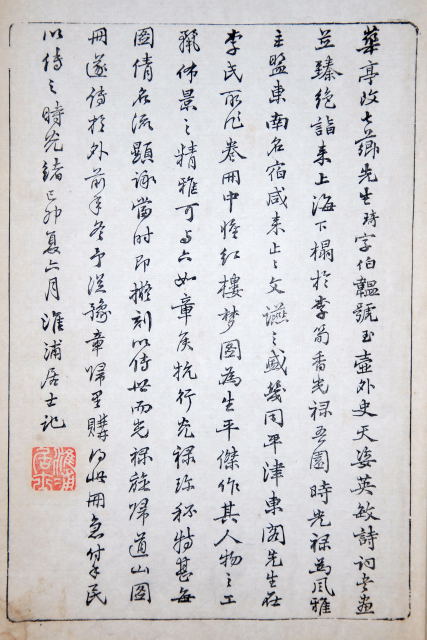 華亭改七薌先生琦字伯韞號玉壺外史天姿英敏詩詞書畫
並臻絕詣來上海下榻於李筍香光祿吾園時光祿為風雅
主盟東南名宿咸來止止文讌之盛幾同平津東閣先生在
李氏所作卷冊中惟紅樓夢圖為生平傑作其人物之工
麗佈景之精雅可与六如章侯抗行光祿珍秘特甚每
圖倩名流題詠當時即擬刻以傳世而光祿旋歸道山圖
冊遂傳於外前年冬予從豫章歸里購得此冊急付手民
以傳之時光緒己卯夏六月淮浦居士記
淮浦居士